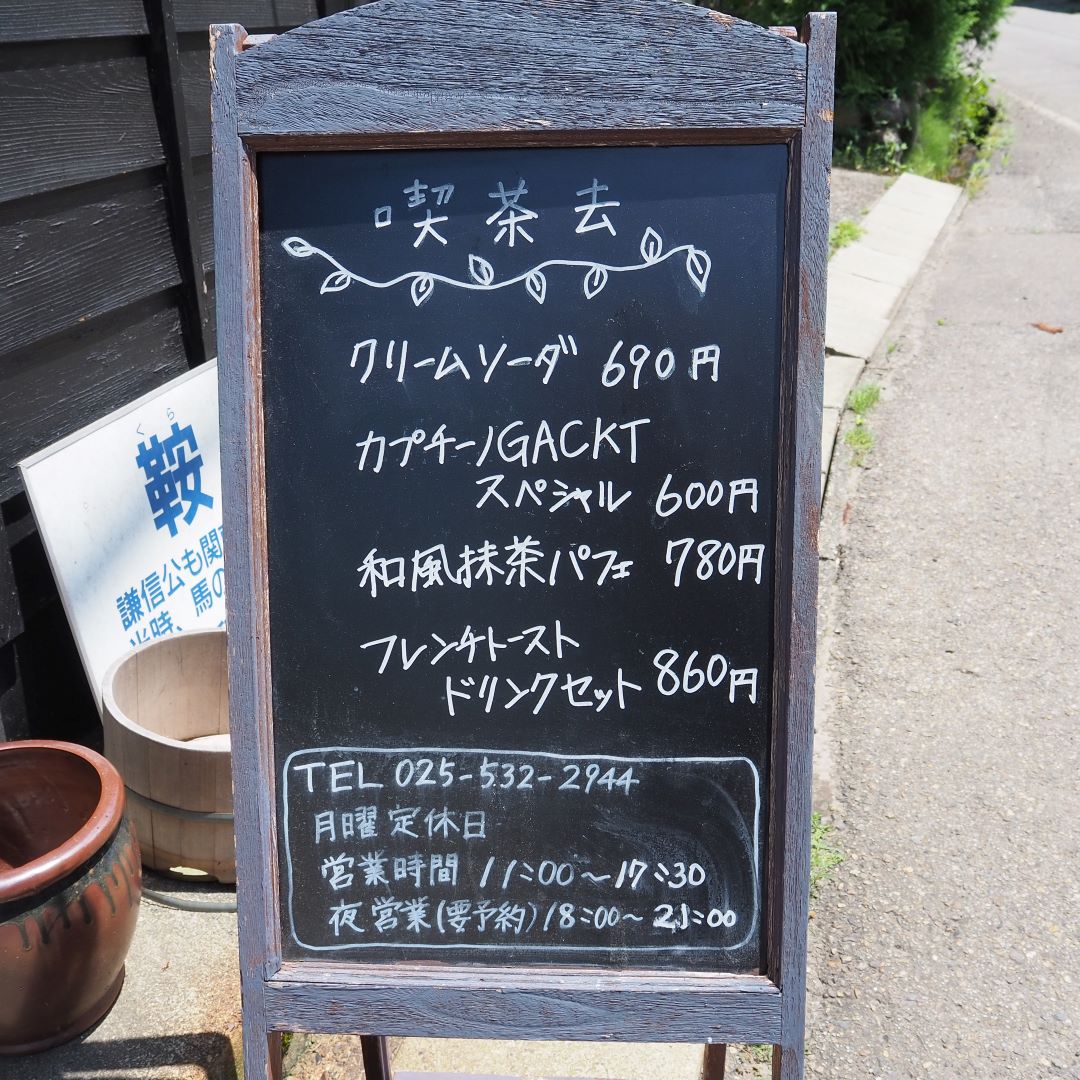 喫茶去
クリームソーダ 690円
カプチーノGACKT
スペシャル 600円
和風抹茶パフェ 780円
フレンチトースト
ドリンクセット 860円
TEL 025-532-2944
月曜定休日
営業時間 11:00～17:30
夜営業(要予約)18:00～21:00
くら
鞍
謙信公も関
馬の